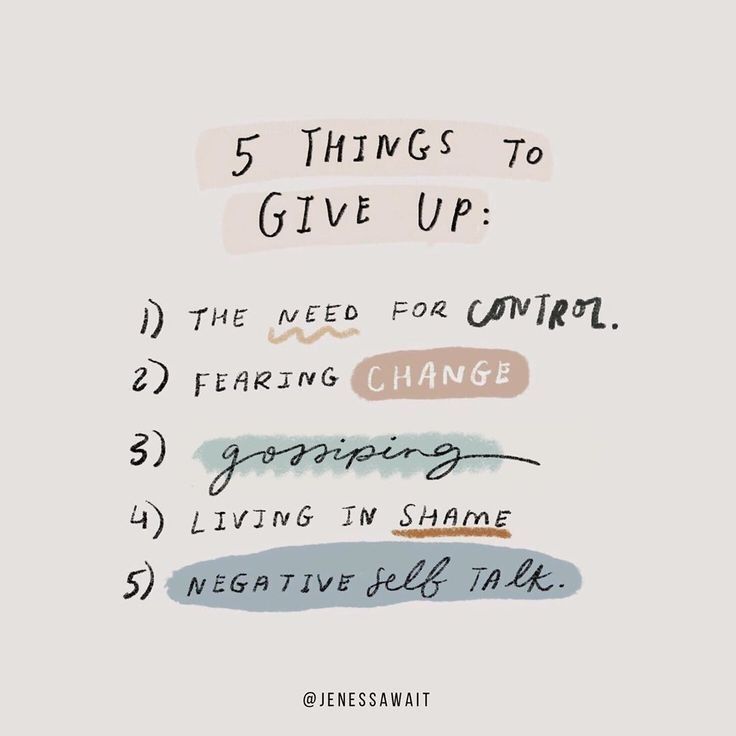 5 THINGS TO
GIVE UP:
1) THE NEED FOR CONTROL.
2) FEARING CHANGE
3) gossiping
4) LIVING IN SHAME
5) NEGATIVE self TALK.
@JENESSAWAIT